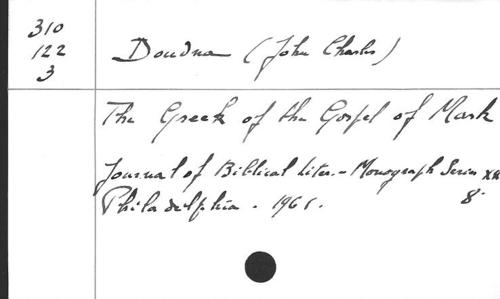 310
122
3
Doudna (John Charles)
The Greek of the Gospel of Mark
Journal of Biblical Liter. - Monograph Series XII
Philadelphia. 1961.
8°